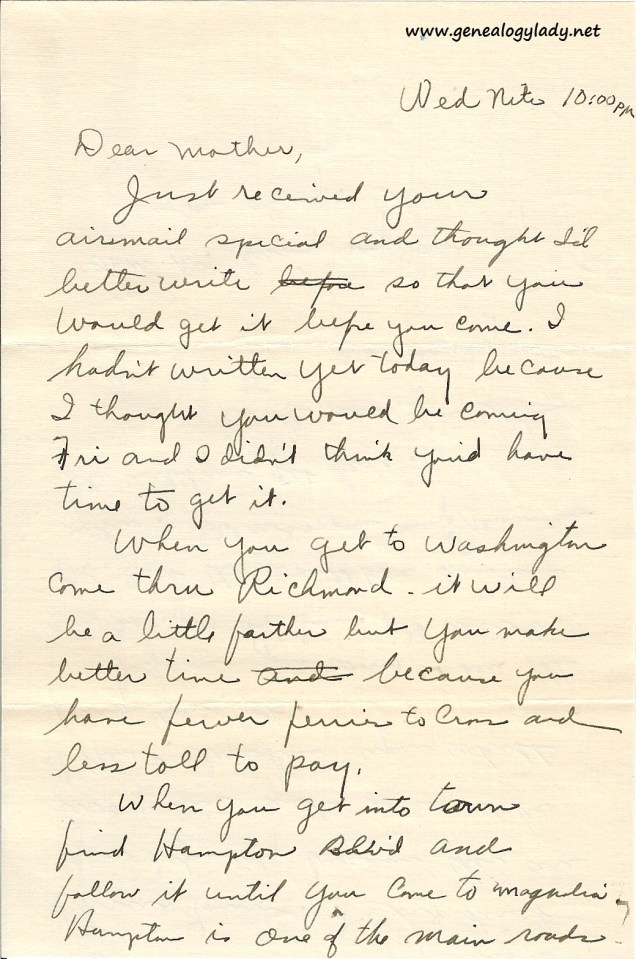 www.genealogylady.net
Wed Nite 10:00PM
Dear Mother,
Just received your
airmail special and thought I'd
better write before so that you
would get it before you come. I
hadn't written yet today because
I thought you would be coming
Fri and I didn't think you'd have
time to get it.
When you get to Washington
come thru Richmond - it will
be a little farther but you make
better time and because you
have fewer ferries to cross and
less toll to pay.
When you get into town
find Hampton Blvd and
follow it until you come to Magnolia -
Hampton is one of the main roads.